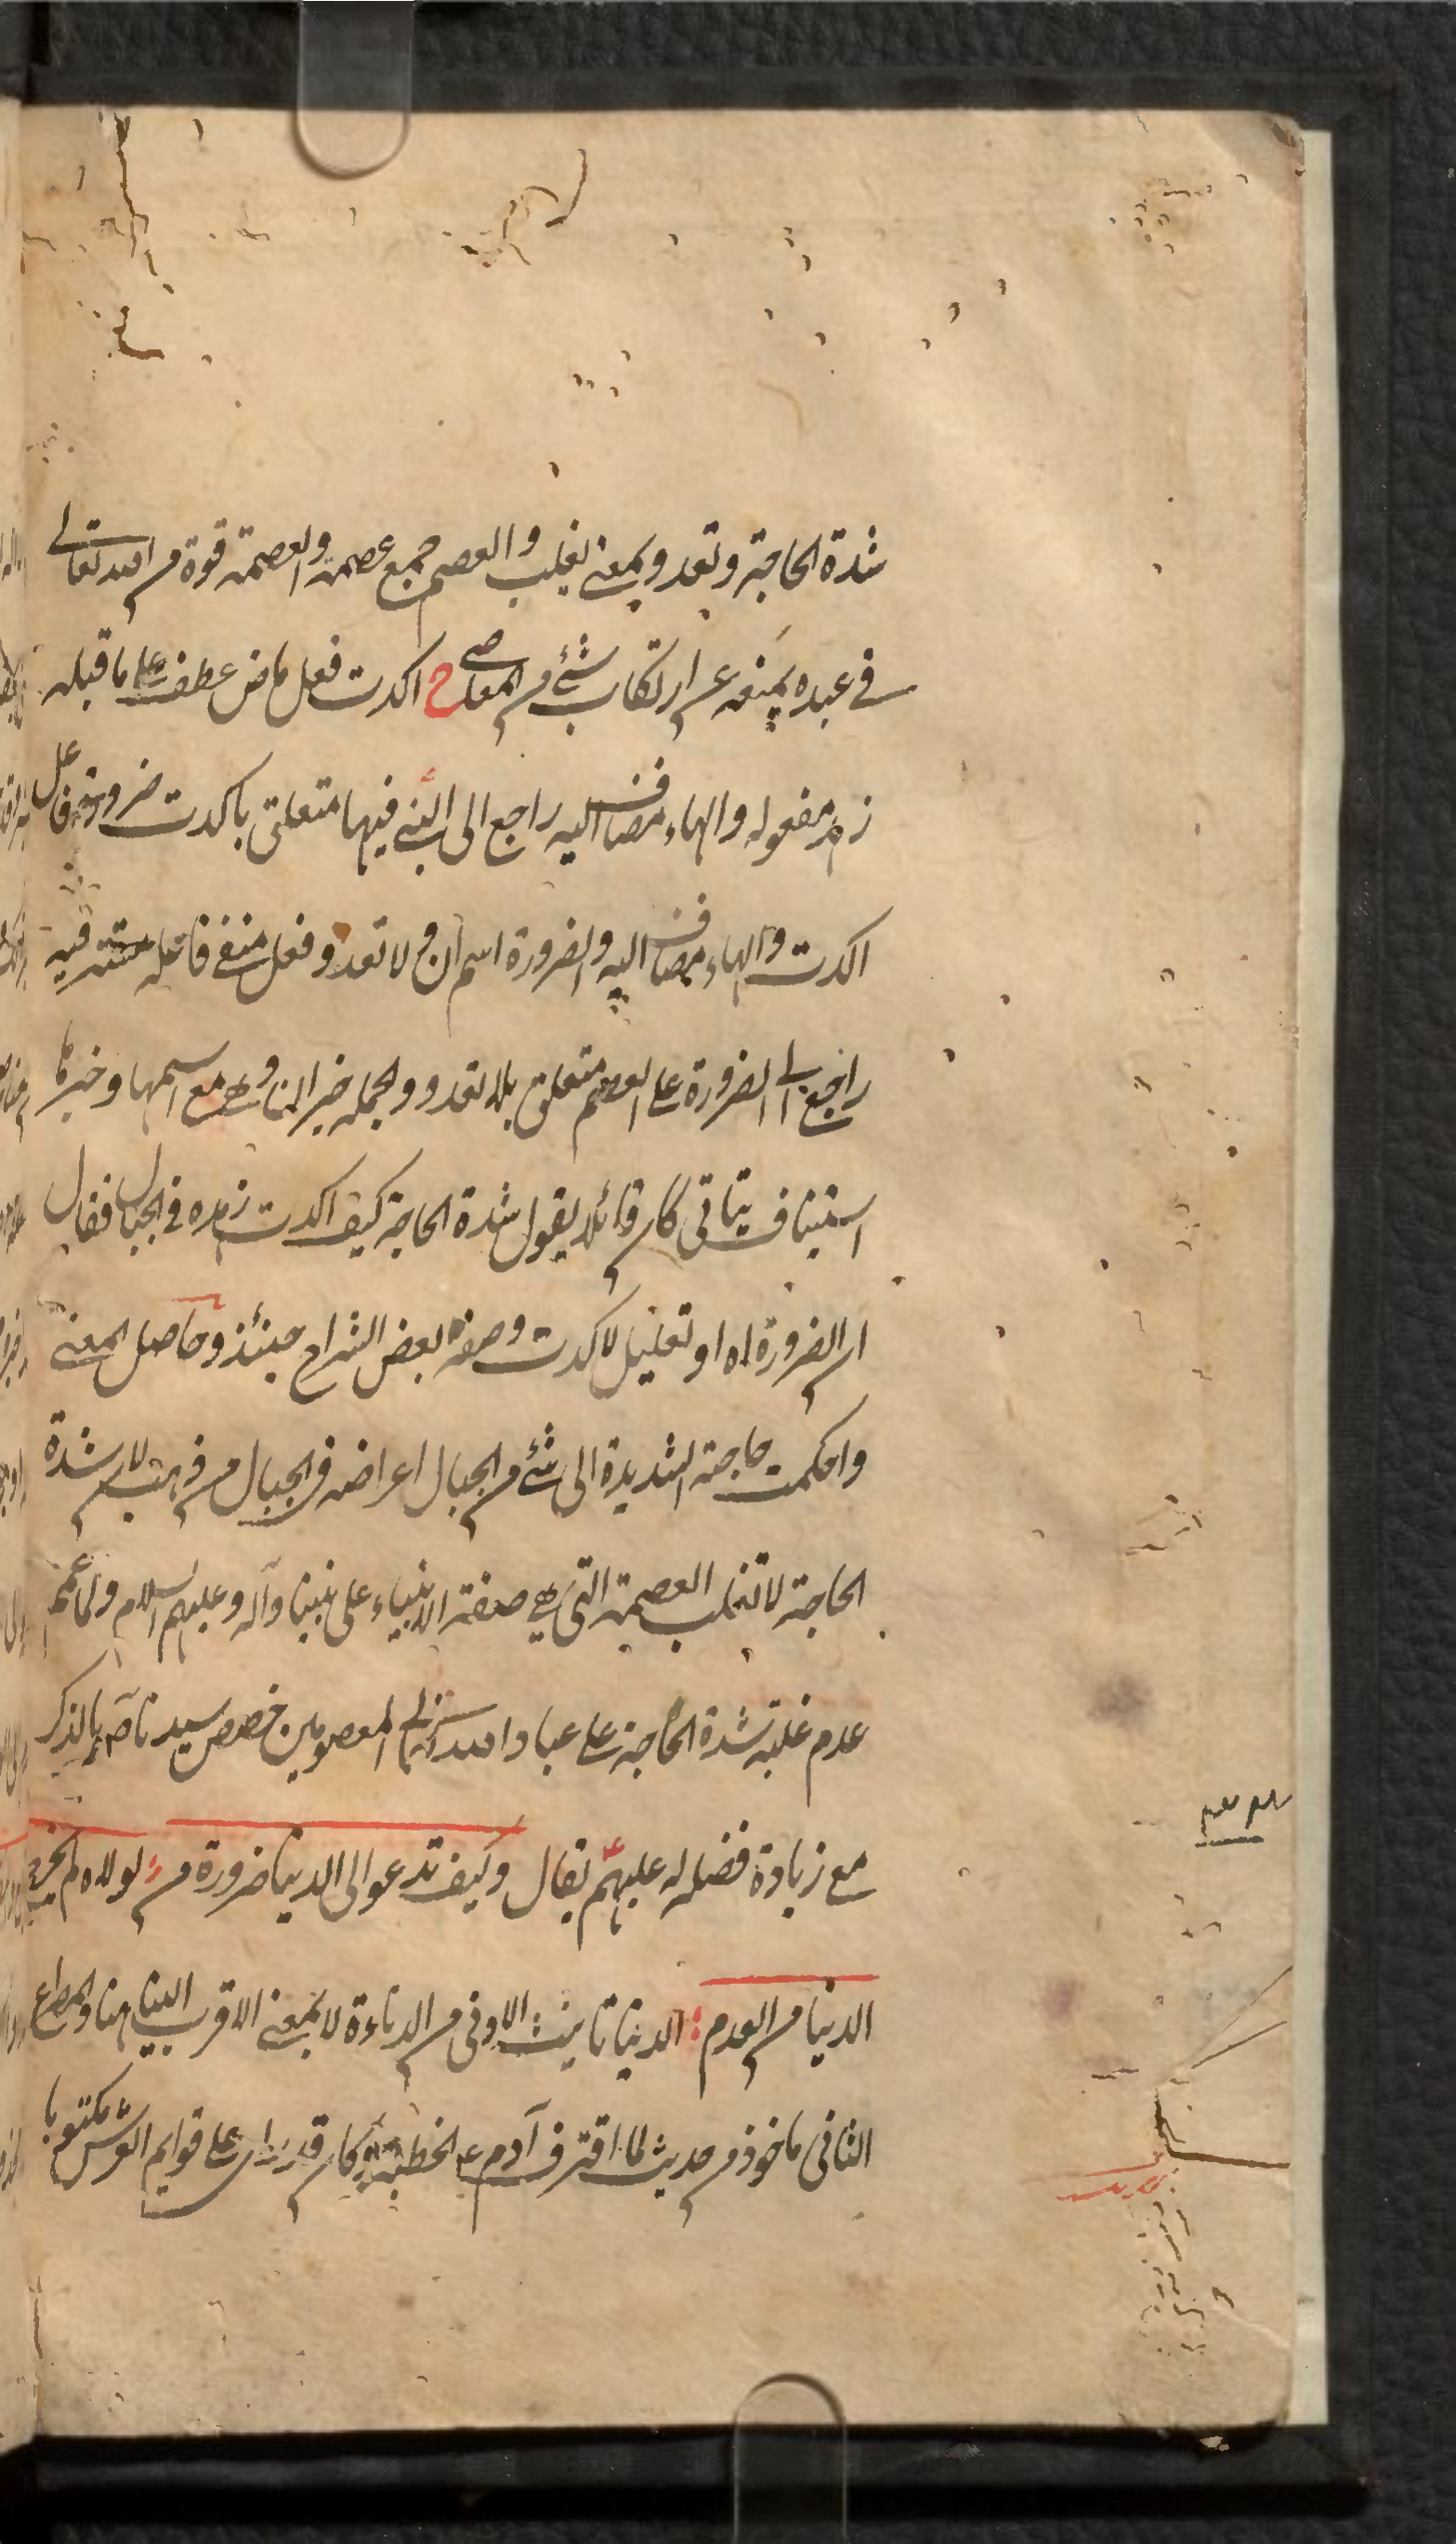 شدة الحاجة وتعدو بمعنى يغلب والعصم جمع عصمة والعصمة قوة من الله تعالى
في عبده يمنعه عن ارتكاب شئ من المعاصي ح اكدت فعل ماض عطف على ما قبله
زهد مفعوله والهاء مضاف اليه راجع الى النبي فيها متعلق باكدت ضرورته فاعل
اكدت والهاء مضاف اليه والضرورة اسم ان و لا تعدو فعل منفي فاعله مستتر فيه
راجع الى الضرورة على العصم متعلق بلا تعدو والجملة خبر ان وهي مع اسمها وخبرها
استيناف بياني كان قائلا يقول شدة الحاجة كيف اكدت زهده في الجبال فقال
ان الضرورة اه او تعليل لاكدت وصفه بعض الشراح حينئذ وحاصل المعنى
واحكمت حاجته الشديدة الى شئ من الجبال اعراضه في الجبال من ذهب لان شدة
الحاجة لا تغلب العصمة التي هي صفة الانبياء على نبينا وآله وعليهم السلام ولما عمم
عدم غلبة شدة الحاجة على عباد الله تعالى المعصومين خصص سيدنا صم بالذكر
مع زيادة فضله له عليهم فقال وكيف تدعو الى الدنيا ضرورة من لولاه لم تخرج
الدنيا من العدم الدنيا تانيث الادنى من الدناءة لا بمعنى الاقرب الينا هنا والمصراع
الثاني ماخوذ من حديث لما اقترف آدم ع الخطيئة وكان قد راى على قوايم العرش مكتوبا